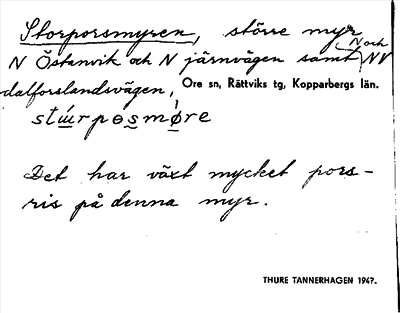 Storporsmyren, större myr
N Östanvik och N järnvägen samt N och NV
dalforslandsvägen, Ore sn, Rättviks tg, Kopparbergs län.
Det har växt mycket pors-
ris på denna myr.
THURE TANNERHAGEN 1947.